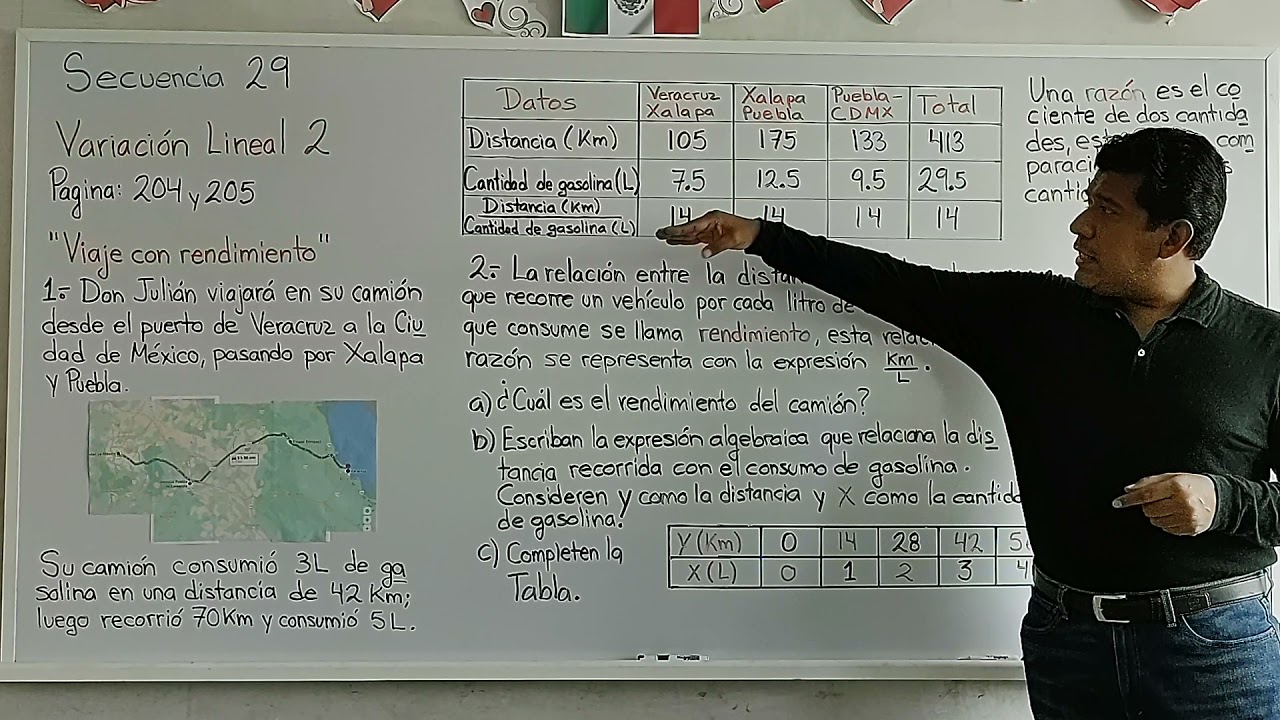 Secuencia 29
Variación Lineal 2
Pagina: 204 y 205
"Viaje con rendimiento"
1.- Don Julián viajará en su camión
desde el puerto de Veracruz a la Ciu
dad de México, pasando por Xalapa
y Puebla.
Su camión consumió 3L de ga
solina en una distancia de 42 Km;
luego recorrió 70Km y consumió 5L.
Datos Veracruz Xalapa Xalapa Puebla Puebla- CDMX Total
Distancia (Km) 105 175 133 413
Cantidad de gasolina (L) 7.5 12.5 9.5 29.5
Distancia (Km)
Cantidad de gasolina (L) 14 14 14 14
2.- La relación entre la
que recorre un vehículo por cada litro de
que consume se llama rendimiento, esta
razón se representa con la expresión Km/L.
a) ¿Cuál es el rendimiento del camión?
b) Escriban la expresión algebraica que relaciona la dis
tancia recorrida con el consumo de gasolina.
Consideren y como la distancia y X como la
de gasolina.
c) Completen la
Tabla.
Y (Km) 0 14 28 42
X (L) 0 1 2 3
Una razón es el co
ciente de dos cantida
des, com